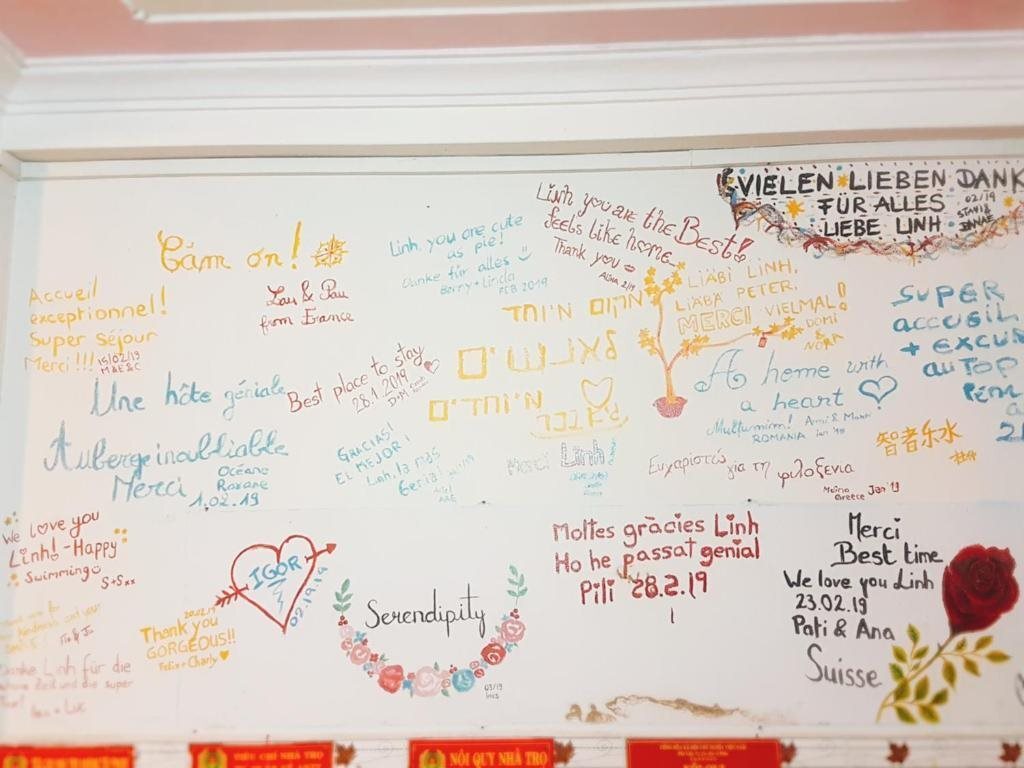 VIELEN LIEBEN DANK
FÜR ALLES
LIEBE LINH
02/19
Linh you are the Best!
feels like home
Thank you
Cảm ơn!
Lau & Pau
from France
Linh, you are cute
as pie!
Danke für alles
Benny + Linda
FEB 2019
Accueil
exceptionnel!
Super Séjour
Merci!!! 15/02/19
M&E&C
LIÄBI LINH,
LIÄBÄ PETER,
MERCI VIELMAL!
DOMI
NORA
SUPER
accueil
au TOP
מקום מיוחד
מיוחדים
Une hôte géniale
Best place to stay
28.1.2019
A home with
a heart
Multumim!
ROMANIA jan '19
智者乐水
Auberge inoubliable
Océane
Roxane
Merci 1.02.19
GRACIAS!
EL MEJOR!
Linh, la más
Genial
Merci Linh
Ευχαριστώ για τη φιλοξενία
Greece Jan '19
We love you
Linh! - Happy
Swimming
S+Sxx
IGOR
02.19.19
20.02.19
Thank you
GORGEOUS!!
Felix + Charly
Serendipity
03/19
Ines
Moltes gràcies Linh
Ho he passat genial
Pili 28.2.19
Merci
Best time
We love you Linh
23.02.19
Pati & Ana
Suisse
Danke Linh für die
und die super
TIÊU CHÍ NHÀ TRỌ
NỘI QUY NHÀ TRỌ